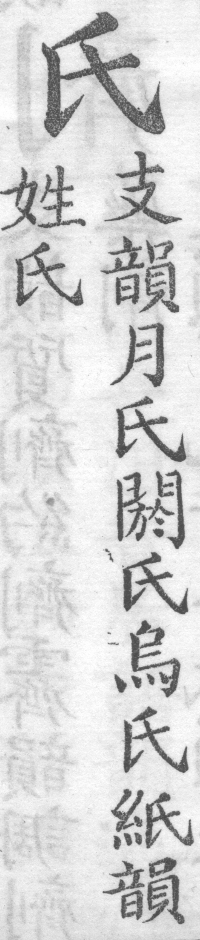 氏
支韻月氏閼氏烏氏紙韻
姓氏